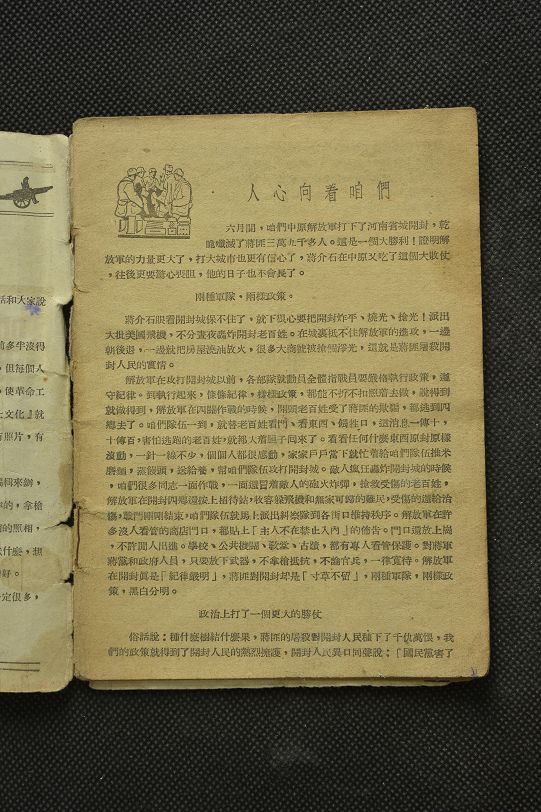 人心向看咱們
六月間，咱們中原解放軍打下了河南省城開封，乾
脆殲滅了蔣匪三萬九千多人。這是一個大勝利！證明解
放軍的力量更大了，打大城市也更有信心了，蔣介石在中原又吃了這個大敗仗
，往後更要驚心喪胆，他的日子也不會長了。
兩種軍隊，兩樣政策。
蔣介石眼看開封城保不住了，就下狠心要把開封炸平、燒光、搶光！派出
大批美國飛機，不分晝夜轟炸開封老百姓。在城裏抵不住解放軍的進攻，一邊
朝後退，一邊就把房屋澆油放火，很多大商號被搶個淨光，這就是蔣匪屠殺開
封人民的實情。
解放軍在攻打開封城以前，各部隊就動員全體指戰員要嚴格執行政策，遵
守紀律。到執行起來，條條紀律，樣樣政策，都能不折不扣照着去做，說得到
就做得到，解放軍在四關作戰的時候，開頭老百姓受了蔣匪的欺騙，都逃到四
鄉去了。咱們隊伍一到，就替老百姓看門、看東西、餵牲口，這消息一傳十，
十傳百，害怕逃跑的老百姓，就都大着膽子囘來了。看看任何什麼東西原封原樣
滾動，一針一線不少，個個人都很感動，家家戶戶當下就忙着給咱們隊伍推米
磨麵，蒸饅頭，送給養，幫咱們隊伍攻打開封城。敵人瘋狂轟炸開封城的時候
，咱們很多同志一面作戰，一面還冒着敵人的砲火炸彈，搶救受傷的老百姓，
解放軍在開封四鄉還按上招待站，收容躲飛機和無家可歸的難民，受傷的還給治
傷，戰鬥剛剛結束，咱們隊伍就馬上派出糾察隊到各街口維持秩序。解放軍在許
多沒人看管的商店門口，都貼上「主人不在禁止入內」的佈告。門口還放上崗
，不許閒人出進。學校、公共機關、教堂、古蹟，都有專人看管保護。對蔣軍
蔣黨和政府人員，只要放下武器，不拿槍抵抗，不論官兵，一律寬待。解放軍
在開封眞是「紀律嚴明」，蔣匪對開封却是「寸草不留」，兩種軍隊，兩樣政
策，黑白分明。
政治上打了一個更大的勝仗
俗話說：種什麼樹結什麼果，蔣匪的屠殺對開封人民種下了千仇萬恨，我
們的政策就得到了開封人民的熱烈擁護，開封人民異口同聲說：「國民黨害了
話和大家說
前多半沒得
，但每個人
。使革命工
七文化』就
有照片，有
編輯來辦，
你的，拿槍
的照相，
什麼，想
好。
定很多，